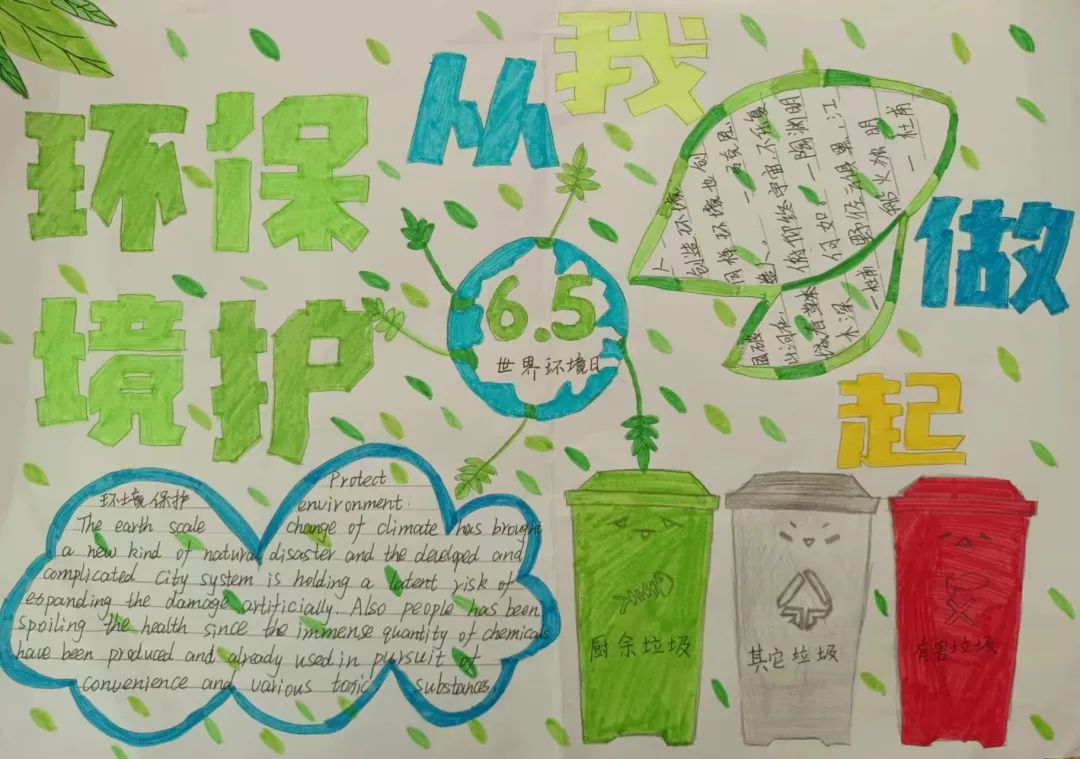 环保
境护
从我做起
6.5
世界环境日
创造环境
同样环境也创
造人。——马克思
俯仰终宇宙,不乐复
何如。——陶渊明
野径云俱黑,江
船火独明
——杜甫
国破
山河在,
城春草木
木深
——杜甫
环境保护 Protect
environment.
The earth scale change of climate has brought
a new kind of natural disaster and the developed and
complicated city system is holding a latent risk of
expanding the damage artificially. Also people has been
spoiling the health since the immense quantity of chemicals
have been produced and already used in pursuit of
convenience and various toxic substances.
厨余垃圾
其它垃圾
有害垃圾